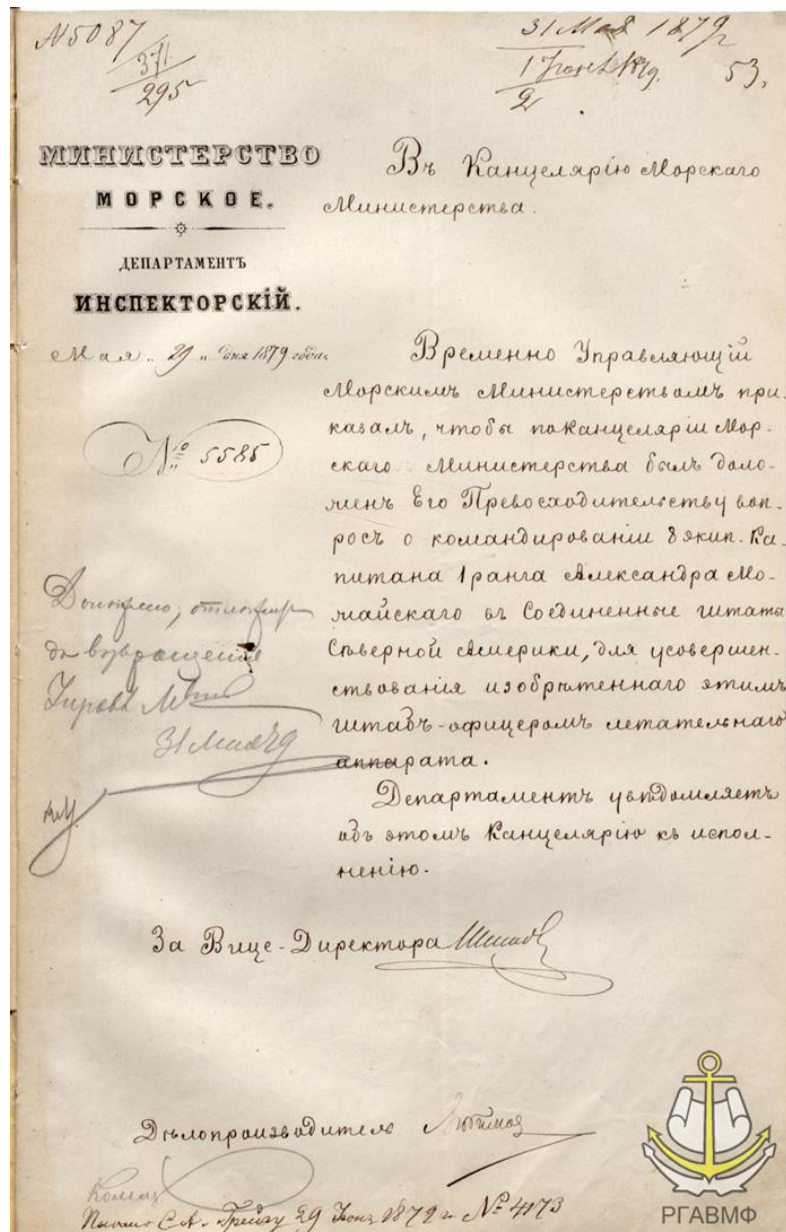 №5087
371
295
31 Мая 1879 г
2
53.
МИНИСТЕРСТВО
МОРСКОЕ.
ДЕПАРТАМЕНТЪ
ИНСПЕКТОРСКІЙ.
Мая „ 29 „ дня 1879 года
№ 5585
Въ Канцелярію Морскаго
Министерства.
Временно Управляющій
Морскимъ Министерствомъ при-
казалъ, чтобы по Канцеляріи Мор-
скаго Министерства былъ доло-
женъ Его Превосходительству воп-
росъ о командированіи 8 экип. Ка-
питана 1 ранга Александра Мо-
жайскаго въ Соединенные штаты
Сѣверной Америки, для усовершен-
ствованія изобрѣтеннаго этимъ
штабъ-офицеромъ летательнаго
аппарата.
Департаментъ увѣдомляетъ
объ этомъ Канцелярію къ испол-
ненію.
Доложено, отложить
до возвращения
31 Мая 79
За Вице-Директора
Дѣлопроизводитель
Письмо С.А. Грейгу 29 1879 г. № 4173
РГАВМФ